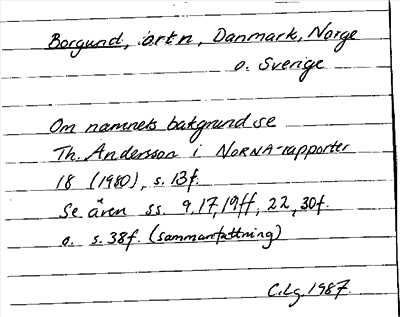 Borgund, ortn, Danmark, Norge
o. Sverige
Om namnets bakgrund se
Th. Andersson i NORNA-rapporter
18 (1980), s. 13f.
Se även ss. 9, 17, 19ff, 22, 30f.
o. s. 38f. (sammanfattning)
C.Lg. 1987